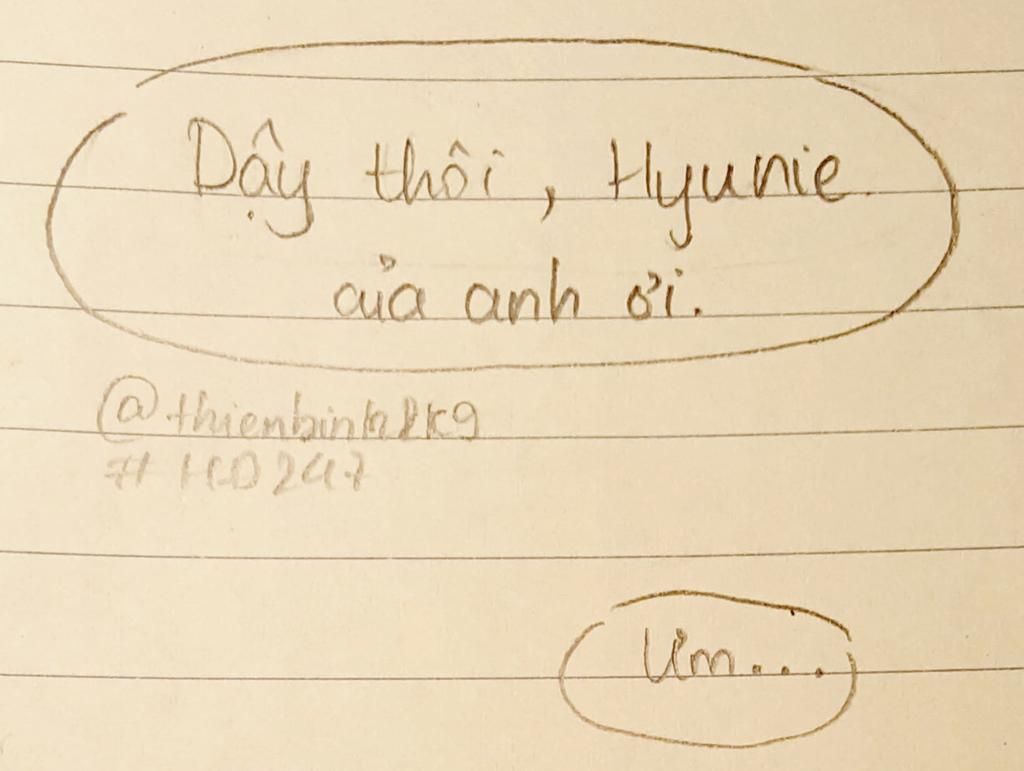 Dậy thôi, Hyunie
của anh ơi.
@thienbinh2k9
#HD247
Ưm....